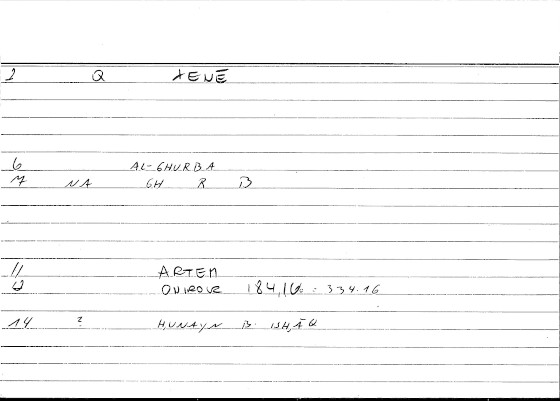 1 Q XENĒ
6 AL-GHURBA
7 NA GH R B
11 ARTEM
12 ONIROCR 184,16 = 334.16
14 ? ḤUNAYN B. ISḤĀQ